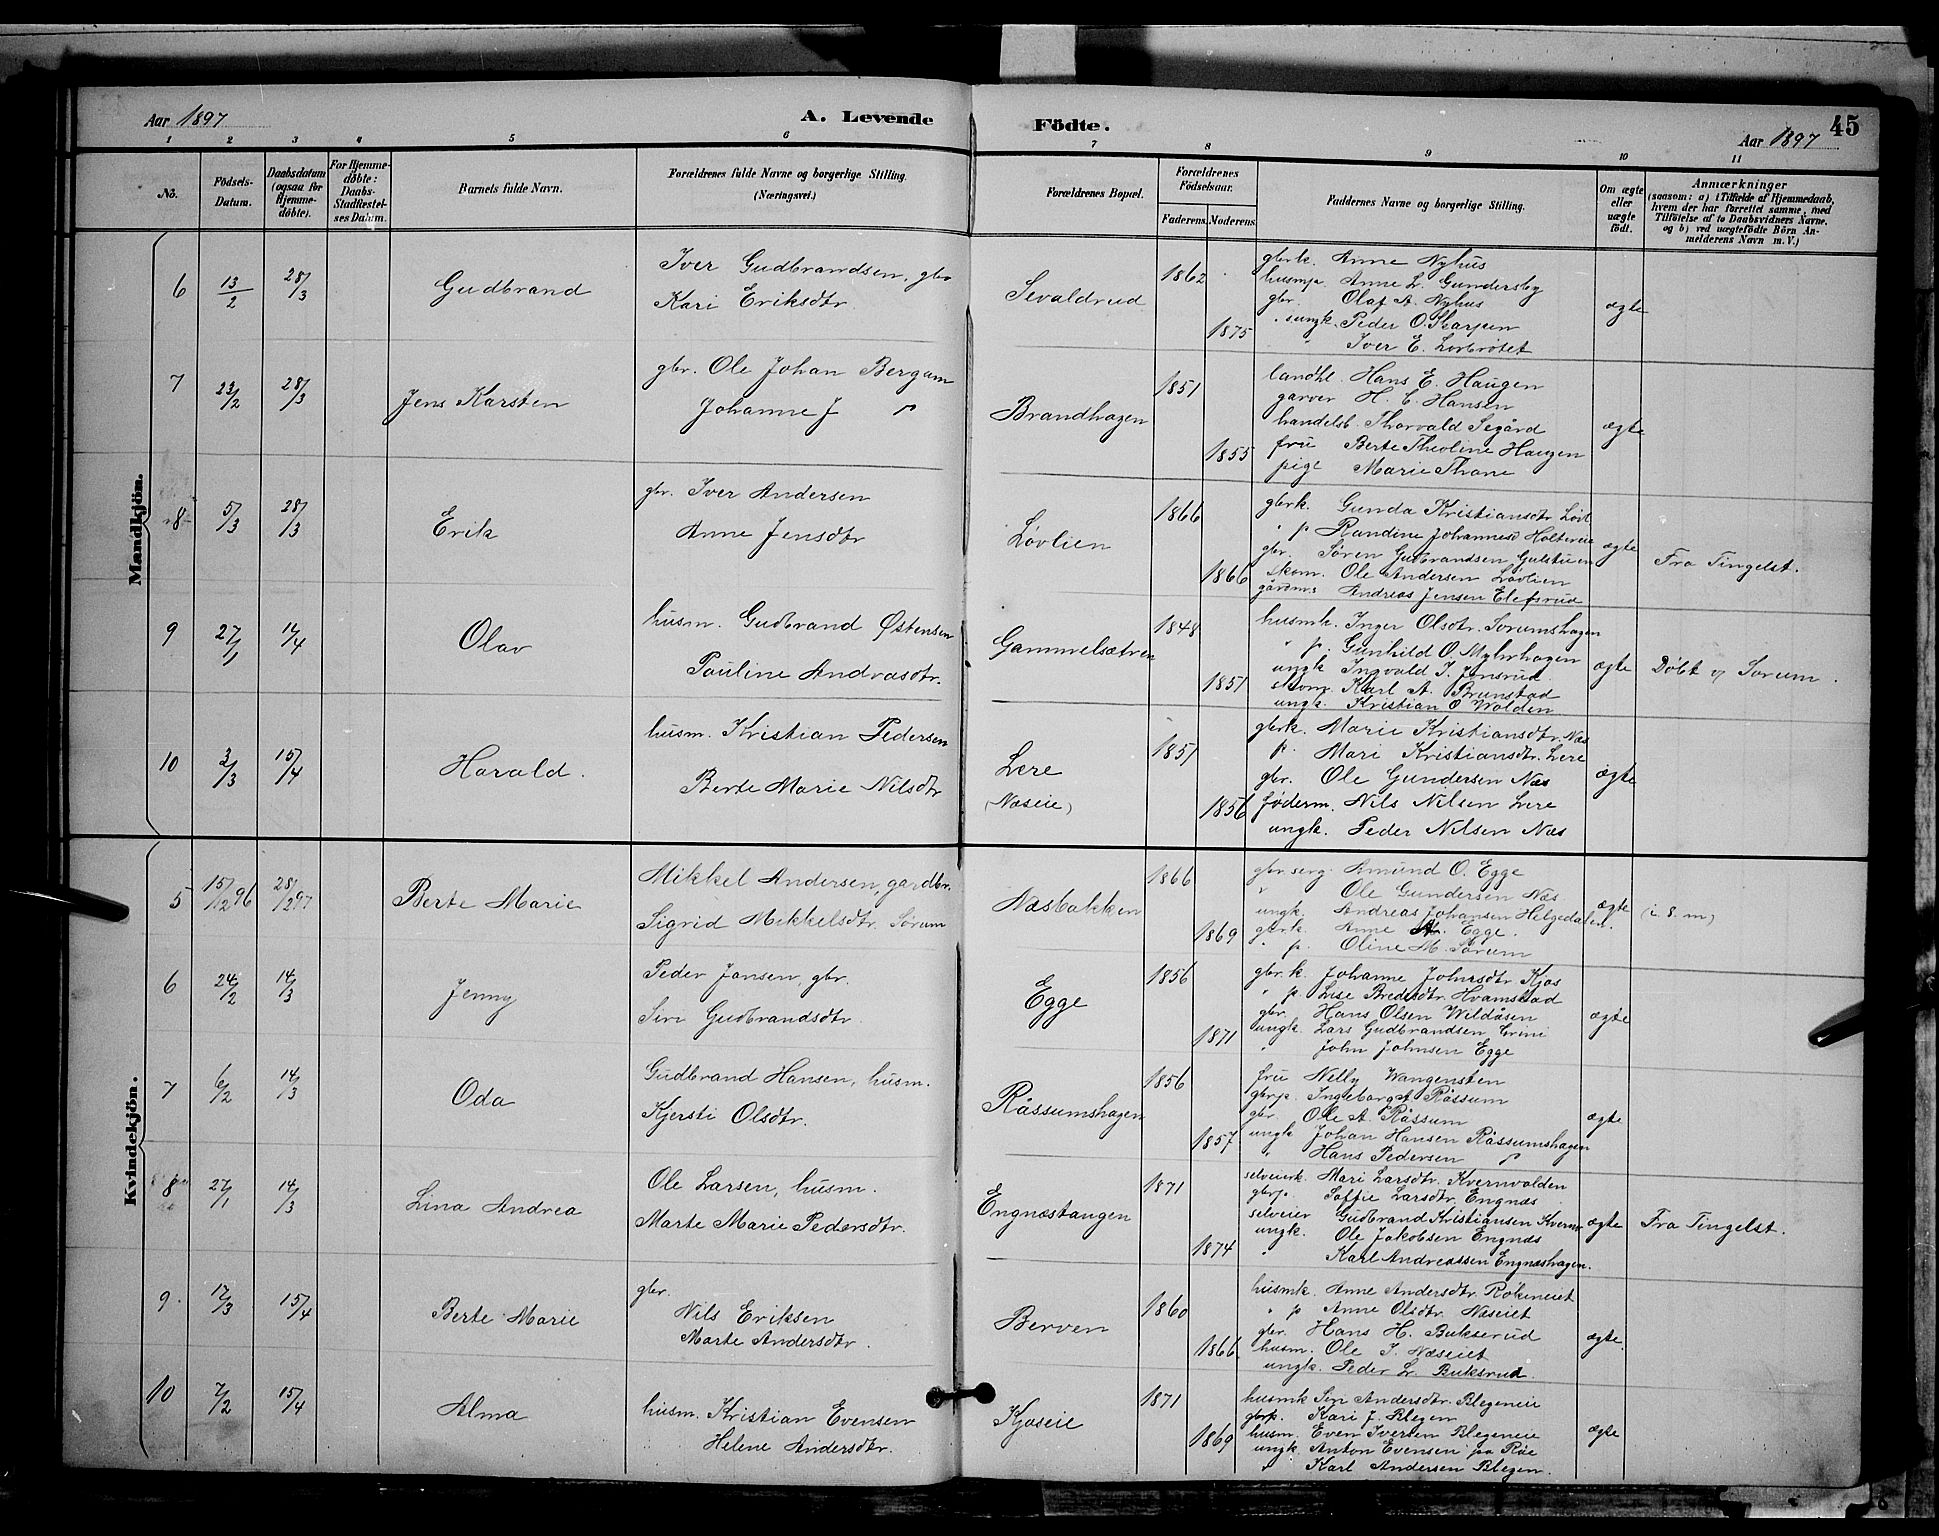 Aar 1897
A. Levende
Födte.
Aar 1897
45
1 2 3 4 5 6 7 8 9 10 11
No.
Födsels-Datum.
Daabsdatum (ogsaa for Hjemme-döbte).
For Hjemme-döbte: Daabs-Stadfæstel-ses Datum.
Barnets fulde Navn.
Forældrenes fulde Navne og borgerlige Stilling. (Næringsvei.)
Forældrenes Bopæl.
Forældrenes Födselsaar.
Faderens. Moderens.
Faddernes Navne og borgerlige Stilling.
Om ægte eller uægte födt.
Anmærkninger
(saasom: a) i Tilfælde af Hjemmedaab,
hvem der har forrettet samme, med
Tilföielse af to Daabsvidners Navne.
og b) ved uægtefödte Börn An-
melderens Navn m. V.)
Mandkjön.
6 13/2 28/3 Gudbrand
Iver Gudbrandsen, gbr
Kari Eriksdtr.
Sevaldrud 1862 1875
gbrk. Anne Nyhus
husmp. Anne L. Gundersby
gbr. Olaf A. Nyhus
" ungk. Peder O. Skarpen
" Iver E. Lovbrøtet
ægte
7 23/2 28/3 Jens Karsten
gbr. Ole Johan Bergum
Johanne J "
Brandhagen 1851 1855
landhl. Hans E. Haugen
garver H. C. Hansen
handelsb. Thorvald Segård
fru Berte Theoline Haugen
pige Marie Thone
ægte
8 5/3 28/3 Erik
gbr. Iver Andersen
Anne Jensdtr
Løvlien 1866 1866
gbrk. Gunda Kristiansdtr Løvl
" p Randine Johannesd Holtereie
gbr. Søren Gudbrandsen Gulstuen
skom. Ole Andersen Løvlien
gårdms Andreas Jensen Elefsrud
ægte
Fra Tingelst.
9 27/1 16/4 Olav
husm. Gudbrand Østensen
Pauline Andreasdtr.
Gammelsætren 1848 1851
husmk. Inger Olsdtr. Sorumshagen
" p. Gunhild O. Myhrhagen
ungk Ingvald I. Jonsrud
skom. Karl A. Brunstad
ungk. Kristian O Wolden
ægte
Döbt i Sorum.
10 3/3 15/4 Harald.
husm. Kristian Pedersen
Berte Marie Nilsdtr
Lere
(Næseie)
1851 1856
gbrk. Marie Kristiansdtr. Næs
p. Mari Kristiansdtr. Lere
gbr. Ole Gundersen Næs
föderm. Nils Nilsen Lere
ungk. Peder Nilsen Næs
ægte
Kvindekjön.
5 15/12 96 28/2 97 Berte Marie
Mikkel Andersen, gardbr.
Sigrid Mikkelsdtr. Sørum
Næsbakken 1866 1869
gbr. serg. Amund O. Egge
" Ole Gundersen Næs
ungk. Andreas Johansen Helgedalen.
gbrk. Anne A. Egge.
" p. Oline M. Sorum
ægte
(i. S. m)
6 24/2 14/3 Jenny
Peder Jansen, gbr.
Siri Gudbrandsdtr.
Egge 1856 1871
gbr. k. Johanne Johnsdtr Kjos
" p. Lise Bredesdtr. Hvamstad
gbr. Hans Olsen Wildåsen
ungk. Lars Gudbrandsen Grini
" John Johnsen Egge
ægte
7 6/2 14/3 Oda
Gudbrand Hansen, husm.
Kjersti Olsdtr.
Råssumshagen 1856 1857
fru Nelly Wangensten
gbrp. Ingeborg A Råssum
gbr. Ole A Råssum
ungk Johan Hansen Råssumshagen
" Hans Pedersen "
ægte
8 27/1 14/3 Lina Andrea
Ole Larsen, husm.
Marte Marie Pedersdtr.
Engnæstangen 1871 1874
selveierk. Mari Larsdtr. Kvernvolden
gbrp. Soffie Larsdtr. Engnæs
selveier Gudbrand Kristiansen Kvernv
ungk. Ole Jakobsen Engnæs
" Karl Andreassen Engnæshagen.
ægte
Fra Tingelst.
9 17/3 15/4 Berte Marie
gbr.
Nils Eriksen
Marte Andersdtr.
Berven 1860 1866
husmk. Anne Andersdtr. Rökeneiet
" p Anne Olsdtr. Næseiet
gbr. Hans H. Bukserud
husm. Ole I. Næseiet
ungk. Peder L. Buksrud.
ægte
10 7/2 15/4 Alma
husm. Kristian Evensen
Helene Andersdtr.
Kjoseie 1871 1869
husmk Siri Andersdtr. Blegeneie
gbrp. Kari J. Blegen
husm. Even Iversen Blegeneie
ungk. Anton Evensen pa Röe
" Karl Andersen Blegen.
ægte